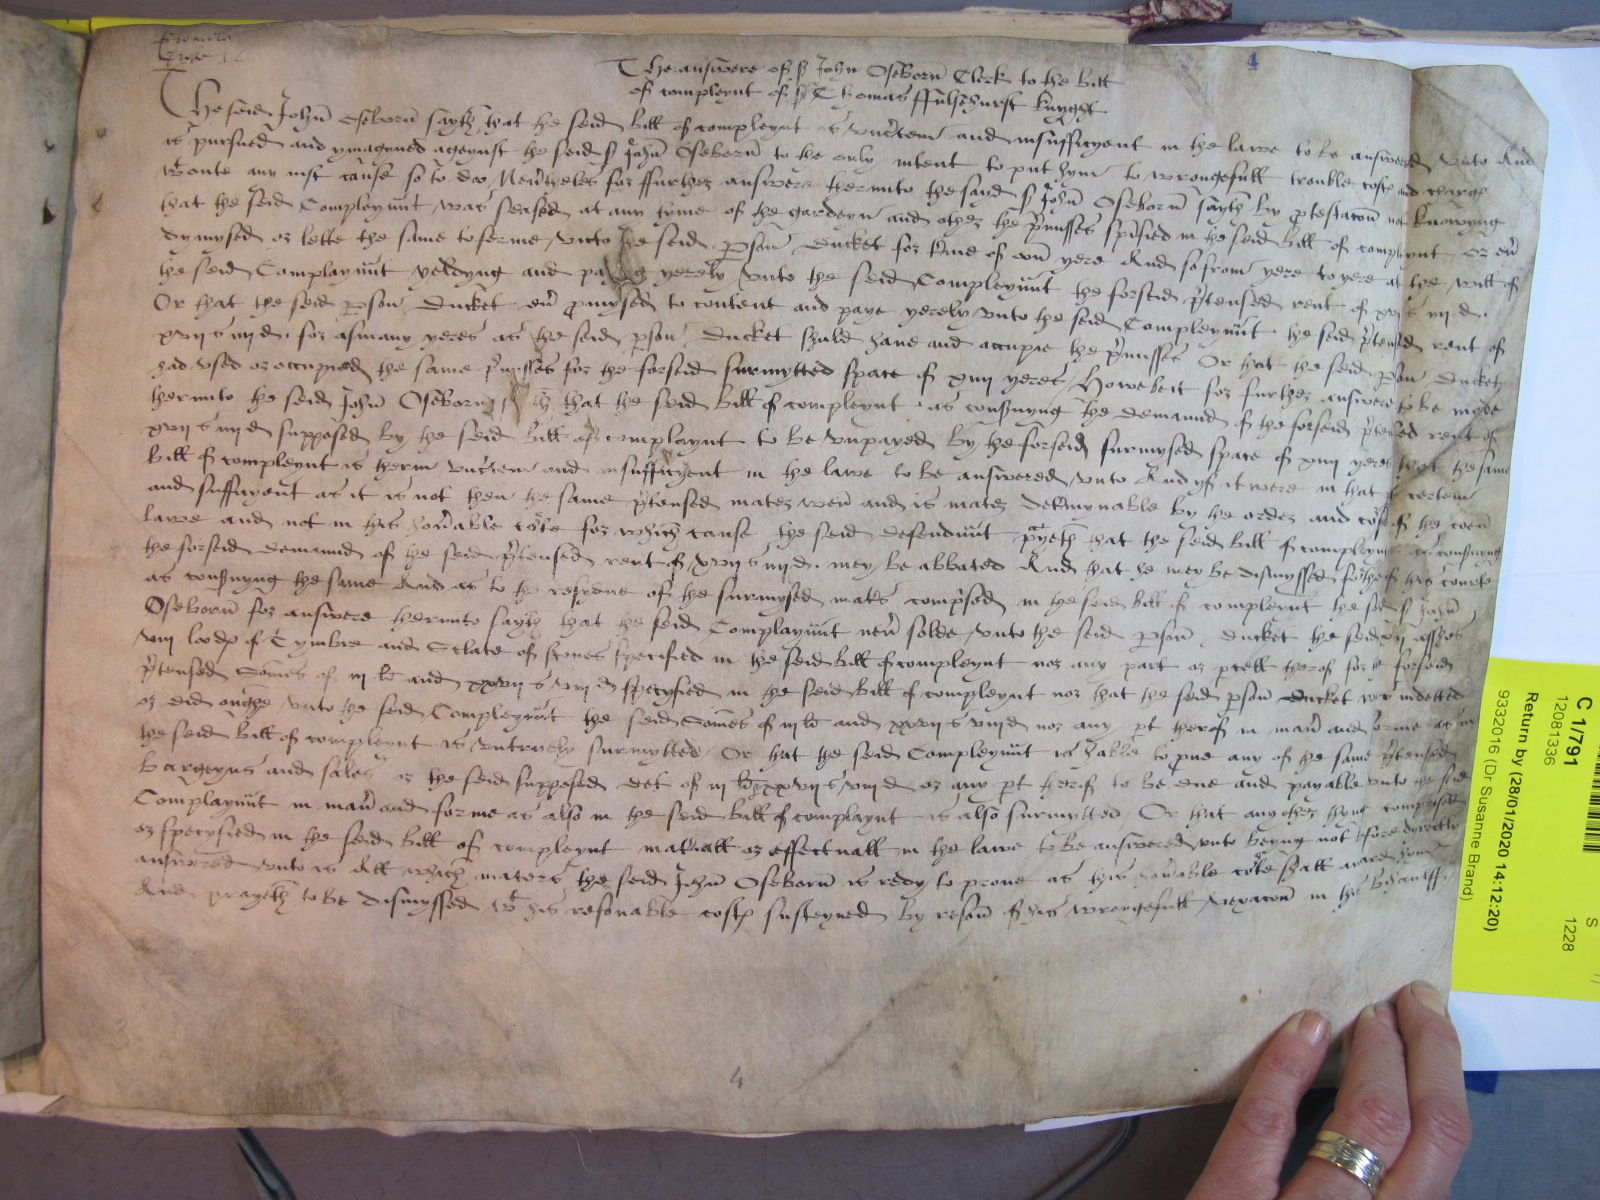 4
The answere of s John Oseborn Clerk to the bill
of compleynt of s Thomas ffulshurst knyght
The seid John Oseborn sayth that the seid bill of compleynt is uncteyn and insufficyent in the lawe to be answered unto And
is pursued and ymagyned ageynst the seid s John Oseborn to the only intent to put hym to wrongefull trouble costs and charges
wtoute any just cause so to do Nevtheles for ffurther answere therunto the sayd s John Oseborn sayth by ptestacon not knowyng
that the seid Compleynunt was seased at any tyme of the gardeyn and other the pmisses spified in the seid bill of compleynt or ev
dymysed or lette the same to ferme unto the seid pson Ducket for t'me of oon yere And so from yere to yere at the will of
the seid Complaynunt yeldyng and pa yerely unto the seid Compleynunt the forseid ptensed rent of xvii s iiii d.
Or that the seid pson Ducket ev pmysed to content and paye yerely unto the seid Compleynunt the seid ptensed rent of
xvii s iiii d. for asmany yeres as the seid pson Ducket shuld have and occupie the pmisses Or that the seid pson Ducket
had used or occupied the same pmisses for the forseid surmytted space of xiiii yeres / Howebeit for further answere to be made
therunto the seid John Oseborn that the seid bill of compleynt as consnyng the demaund of the forseid ptensed rent of
xvii s iiii d supposed by the seid bill of complaynt to be unpayed by the forseid surmysed space of xiiii yeres that the same
bill of compleynt is therin uncteyn and insufficyent in the lawe to be answered unto And yf it were in that pt certeyn
and sufficyent as it is not then the same ptensed mater wen and is mater detmynable by the order and co'se of the coen
lawe and not in this honable co'te for which cause the seid defendunt prayeth that the seid bill of compleynt as consnyng
the forseid demaund of the seid ptensed rent of xvii s iiii d. mey be abbated And that he mey be dismyssed forthe of this courte
as consnyng the same And as to the resydue of the surmysed maters comprised in the seid bill of compleynt the seid s John
Oseborn for answere therunto sayth that the seid Complaynunt nev solde unto the seid pson Ducket the seid
viii loods of Tymbre and Sclate of stones specified in the seid bill of compleynt nor any part or pcell therof for the forseid
ptensed Somes of iii li and xxvii s viii d specyfied in the seid bill of compleynt nor that the seid pson Ducket was indetted
or did oughe unto the seid Compleynunt the seid Somes of iii li and xxvii s viii d nor any pt therof in man and forme as in
the seid bill of compleynt is untruely surmytted / Or that the seid Compleynunt is hable to pve any of the same ptensed
bargeyns and sales or the seid supposed det of iii li xxvii s viii d or any pt therof to be due and payable unto the seid
Complaynunt in man and forme as also in the seid bill of complaynt is also surmytted / Or that any other thyng comprised
or specyfied in the seid bill of compleynt matiall or effectuall in the lawe to be answered unto beyng not before dyrectly
answered unto is All which maters the seid John Oseborn is redy to prove as this honable co'te shall award hym
And prayeth to be dismyssed wt his resonable costs susteyned by reson of his wrongefull vexacon in this behaulff
4
C 1/791
12081336
Return by (28/01/2020 14:12:20)
9332016 (Dr Susanne Brand)
S
1228